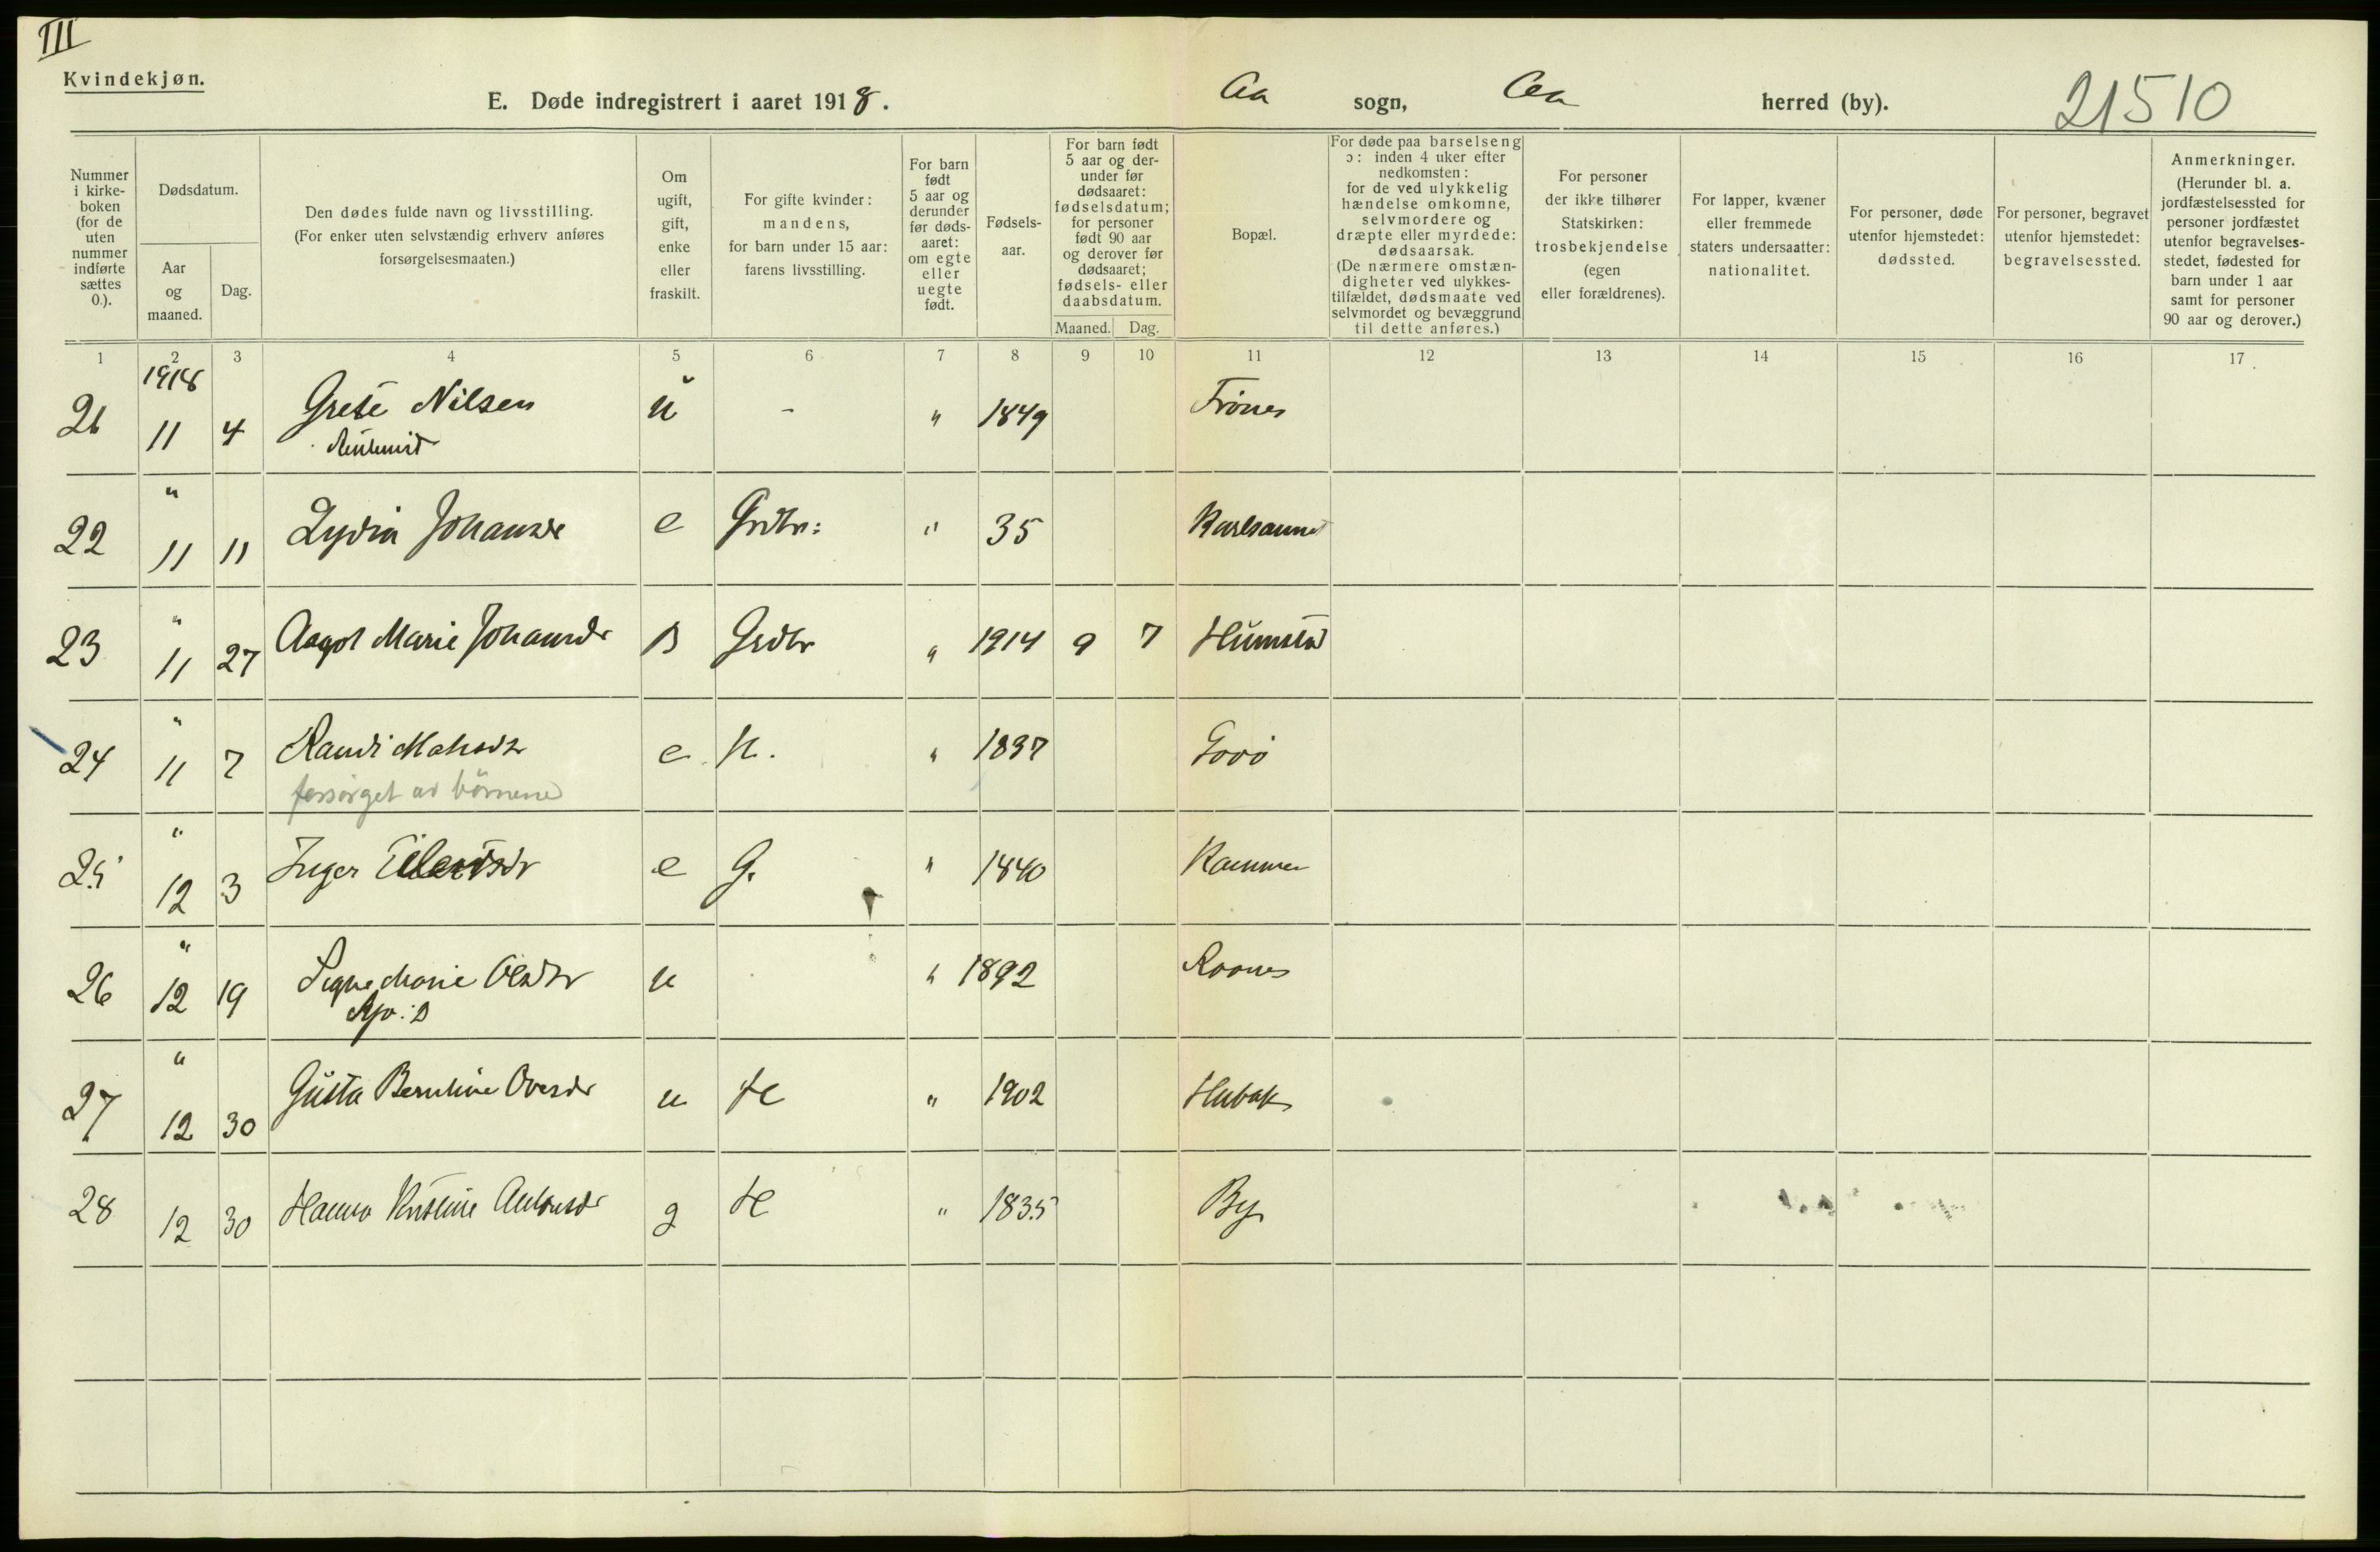 III
Kvindekjøn.
E. Døde indregistrert i aaret 1918.
Aa sogn, Aa herred (by).
21510
Nummer i kirke-boken (for de uten nummer indførte sættes 0.).
Dødsdatum.
Aar og maaned.
Dag.
Den dødes fulde navn og livsstilling.
(For enker uten selvstændig erhverv anføres forsørgelsesmaaten.)
Om ugift, gift, enke eller fraskilt.
For gifte kvinder: mandens, for barn under 15 aar: farens livsstilling.
For barn født 5 aar og derunder før døds-aaret: om egte eller uegte født.
Fødsels-aar.
For barn født 5 aar og der-under før dødsaaret: fødselsdatum; for personer født 90 aar og derover før dødsaaret; fødsels- eller daabsdatum.
Maaned. Dag.
Bopæl.
For døde paa barselseng ɔ: inden 4 uker efter nedkomsten: for de ved ulykkelig hændelse omkomne, selvmordere og dræpte eller myrdede: dødsaarsak.
(De nærmere omstæn-digheter ved ulykkes-tilfældet, dødsmaate ved selvmordet og bevæggrund til dette anføres.)
For personer der ikke tilhører Statskirken: trosbekjendelse (egen eller forældrenes).
For lapper, kvæner eller fremmede staters undersaatter: nationalitet.
For personer, døde utenfor hjemstedet: dødssted.
For personer, begravet utenfor hjemstedet: begravelsessted.
Anmerkninger.
(Herunder bl. a. jordfæstelsessted for personer jordfæstet utenfor begravelses-stedet, fødested for barn under 1 aar samt for personer 90 aar og derover.)
1 2 3 4 5 6 7 8 9 10 11 12 13 14 15 16 17
1918
21 11 4 Grete Nilsen u - " 1849
"
22 11 11 Lydia Johansdr e Grdbr: " 35 Karlsaune
"
23 11 27 Aagot Marie Johansdr B Grdbr " 1914 9 7 Humstad
"
24 11 7 Randi Matsdr e H. " 1837
forsörget av börnene
"
25 12 3 Inger Eilertsdr e G. " 1840
"
26 12 19 Signe Marie Olsdr u " 1892
"
27 12 30 Gusta Berntine Oversdr u H " 1902 Hubak
28 12 30 Hanna Kristine Antonsdr g H " 1835 By